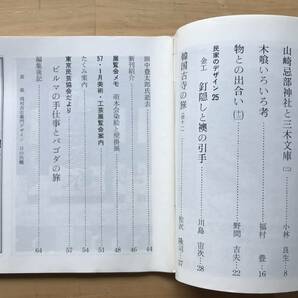 山崎忌部神社と三木文庫 (二) 小林良生…8
木喰いろいろ考 福村豊…16
物との出合い (十二) 野間吉夫…22
民家のデザイン 25
金工 釘隠しと襖の引手 川島宙次…28
韓国古寺の旅 (その十二) 松沢隆司…37
田中豊太郎氏逝去 44
新刊紹介 46
展覧会メモ 萌木会染絵と壁掛展 48
57・1月美術・工芸展覧会案内 51
たくみ案内 54
東京民芸協会だより
ビルマの手仕事とパゴダの旅 57
編集後記 64